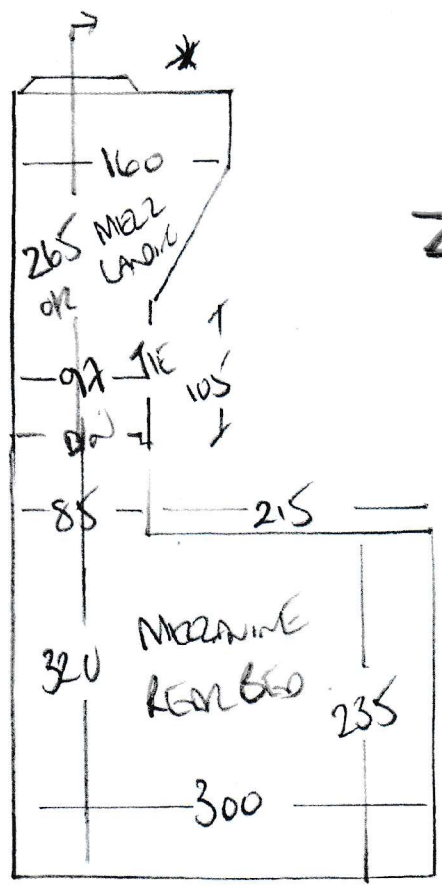 *
160
265 MEZZ
LANDING
OR
97 TIE 105
DN
85 215
MEZZANINE
320
REAR BED
235
300